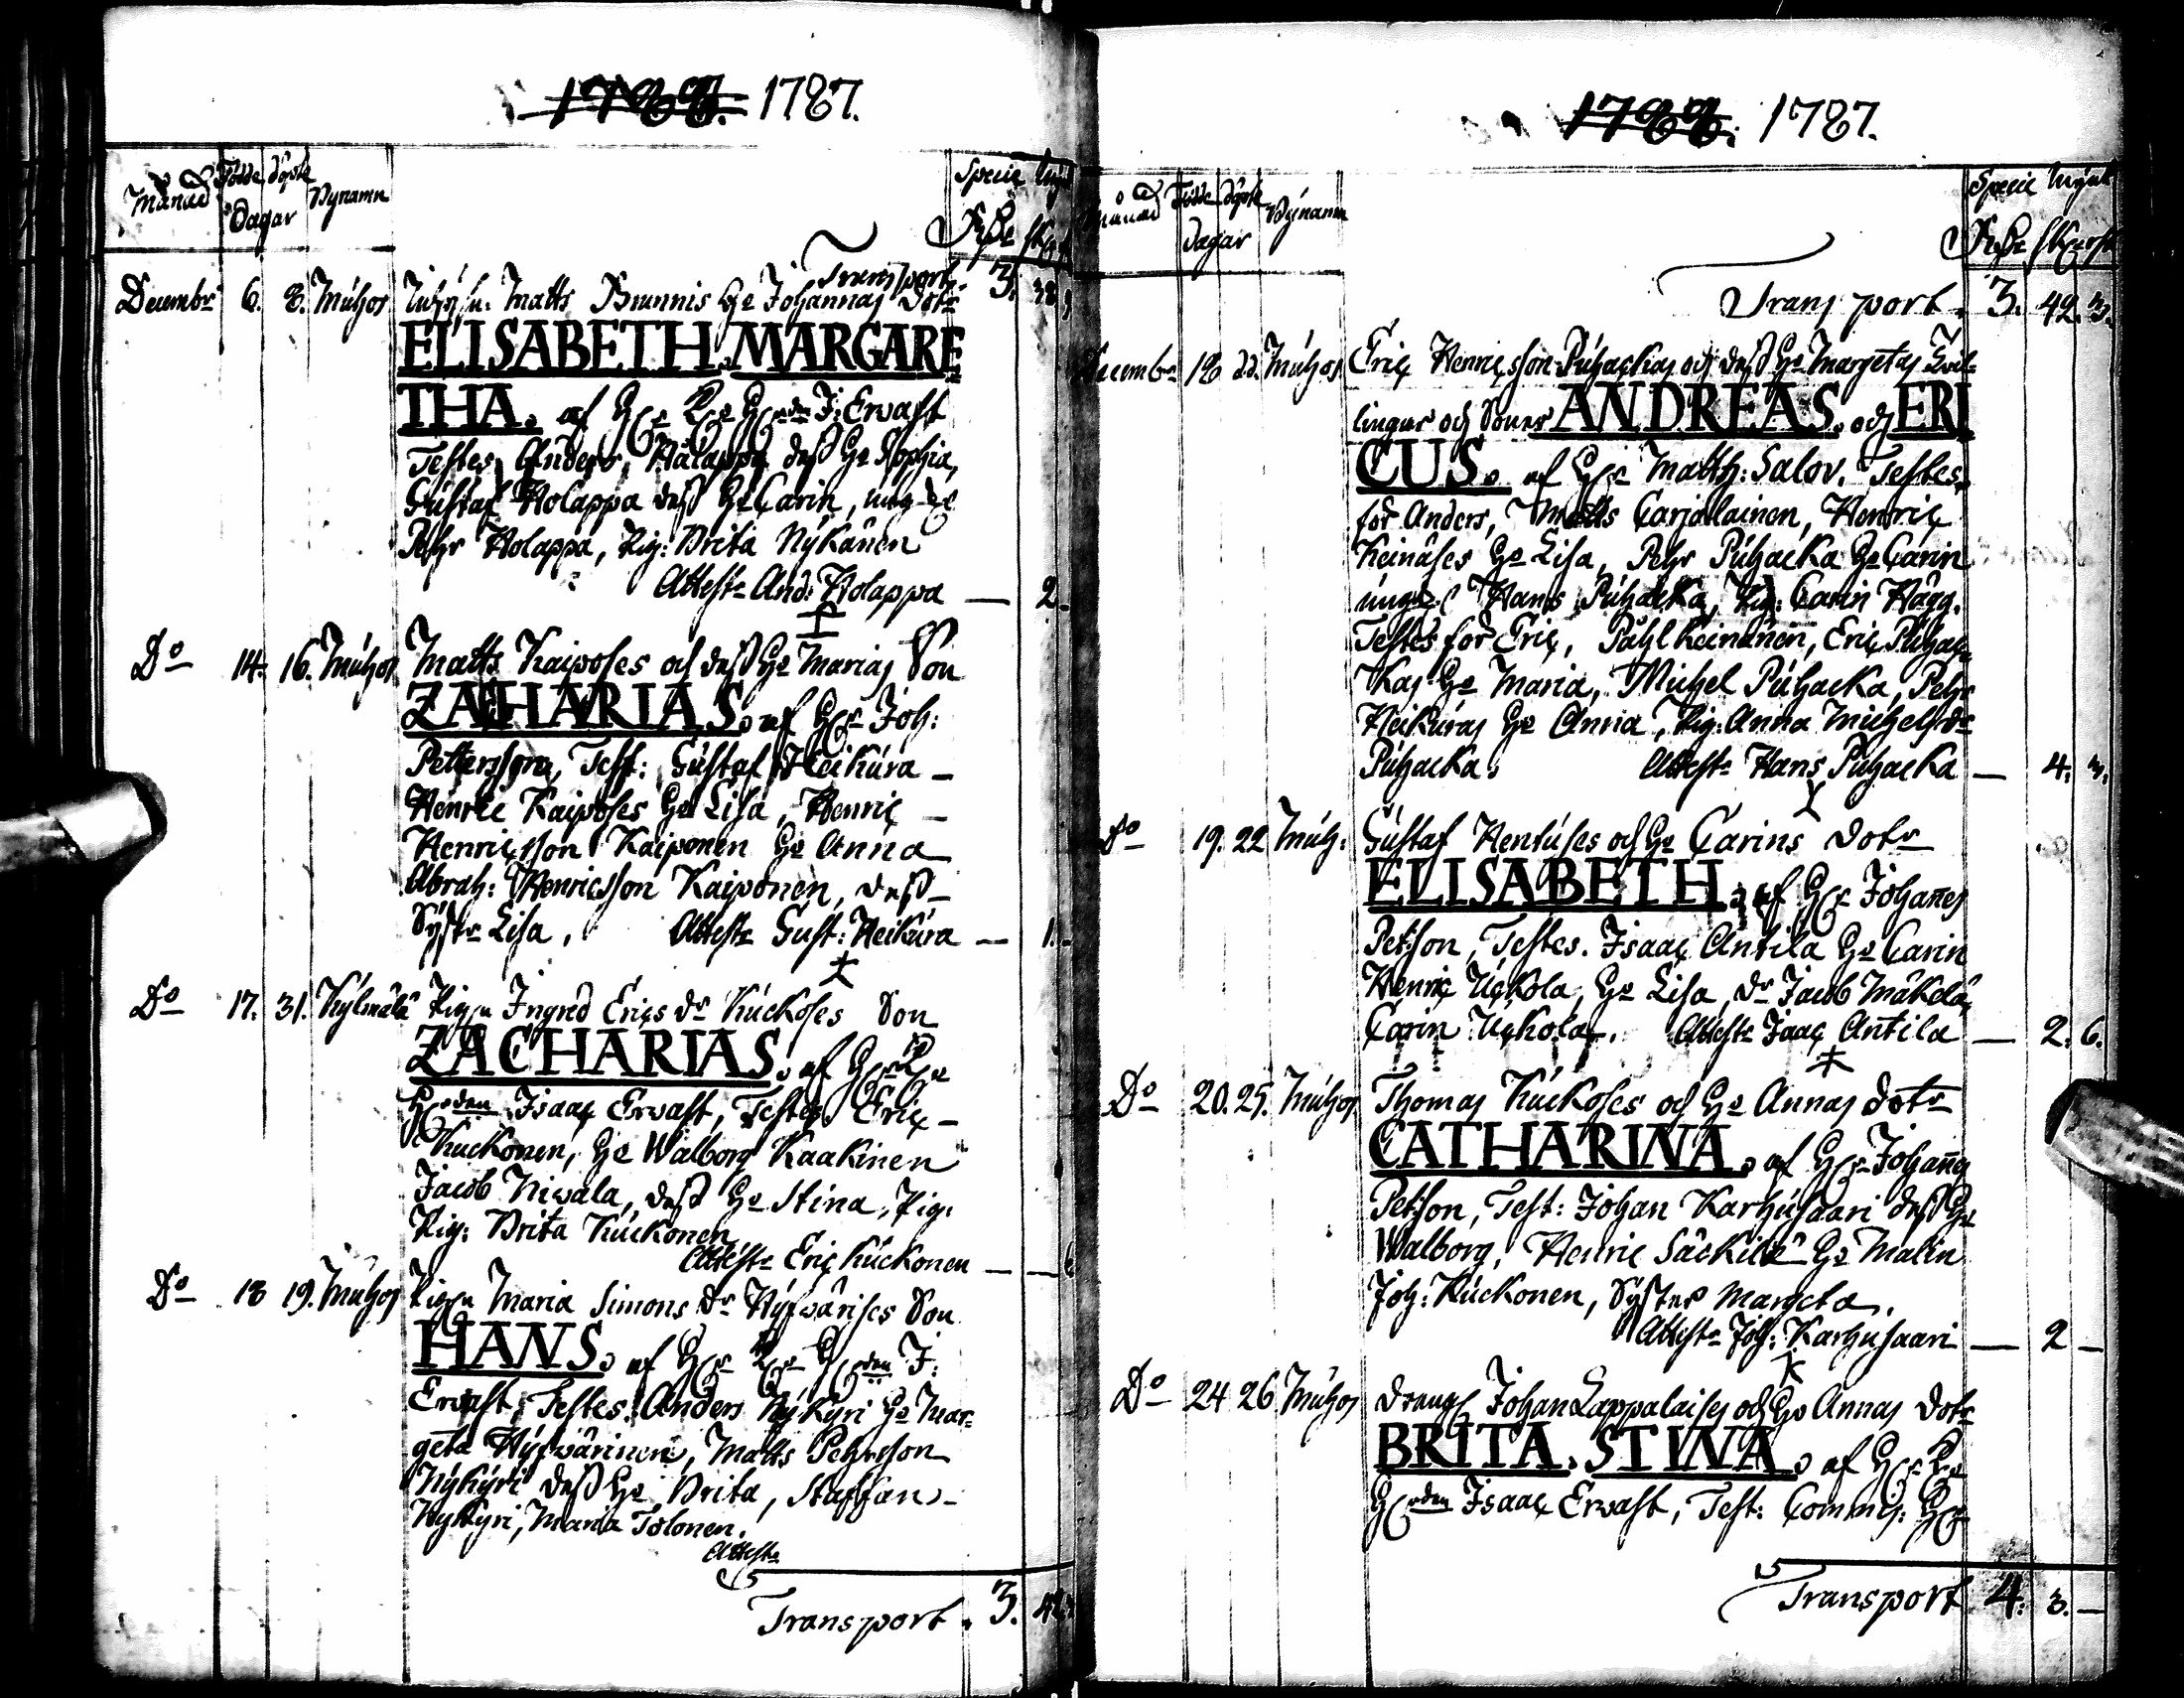 1788. 1787.
Månad Födde Döpte Bynamn Specie Mynt
Dagar
Transport. 3. 38.
Decembr 6. 8. Muhos Matts Brunnis Hu Johannas Dotr
ELISABETH. MARGARE
THA. af J: Erwast
Testes, Anders Holappa dess Hu Sophia,
Gustaf Holappa dess Hu Carin, ung
Pehr Holappa, Pig: Brita Nykänen
Attestr And: Holappa — 2.
Do 14. 16. Muhos Matts Kaiposes och dess Hu Marias Son
ZACHARIAS. af Joh:
Pettersson, Test: Gustaf Heikura —
Henric Kaiposes Hu Lisa, Henric —
Henricsson Kaiponen Hu Anna
Abrah: Henricsson Kaiponen, dess —
Systr Lisa, Attestr Gust: Heikura — 1.
Do 17. 31. Kylmälä Pigan Ingred Erics dr Kuckoses Son
ZACHARIAS. af
Isaac Erwast, Testes Eric —
Kuckonen, Hu Walborg Kaakinen
Jacob Niwala, dess Hu Stina, Pig:
Pig: Brita Kuckonen
Attestr Eric Kuckonen —
Do 18 19. Muhos Pigan Maria Simons dr Hyfwärises Son
HANS. af J:
Erwast, Testes: Anders Nykyri Hu Mar-
geta Hyfwärinen, Matts Pehrsson
Nykyri dess Hu Brita, Staffan —
Nykyri, Maria Tolonen.
Attestr
Transport. 3. 42.
1788. 1787.
Månad Födde Döpte Bynamn Specie Mynt
Dagar
Transport. 3. 42. 3.
Decembr 18 22. Muhos Eric Henricsson Puhackas och dess Hu Margetas Twil-
lingar och Söner ANDREAS. och ERI
CUS. af Matth: Salov. Testes,
för Anders, Matts Carjalainen, Henric
Keinäses Hu Lisa, Pehr Puhacka Hu Carin
ung Hans Puhacka, Pig: Carin Hägg.
Testes för Eric, Påhl Keinänen, Eric Puhac-
kas Hu Maria, Michel Puhacka, Pehr
Heikuras Hu Anna, Pig: Anna Michels dr
Puhacka. Attestr Hans Puhacka — 4. 3.
Do 19. 22 Muh: Gustaf Hentuses och Hu Carins dotr
ELISABETH. af Johannes
Petson, Testes. Isaac Antila Hu Carin
Henric Uckola, Hu Lisa, Dr Jacob Mäkelä,
Carin Uckola. Attestr Isaac Antila — 2. 6.
Do 20. 25. Muhos Thomas Kuckoses och Hu Annas dotr
CATHARINA. af Johannes
Petson, Test: Johan Karhusaari dess Hu
Walborg, Henric Säckilä Hu Malin
Joh: Kuckonen, Syster Margeta.
Attestr Joh: Karhusaari — 2 —
Do 24 26 Muhos Dräng Johan Lappalaises och Hu Annas Dotr
BRITA. STINA. af
Isaac Erwast, Test:
Transport 4. 3. —